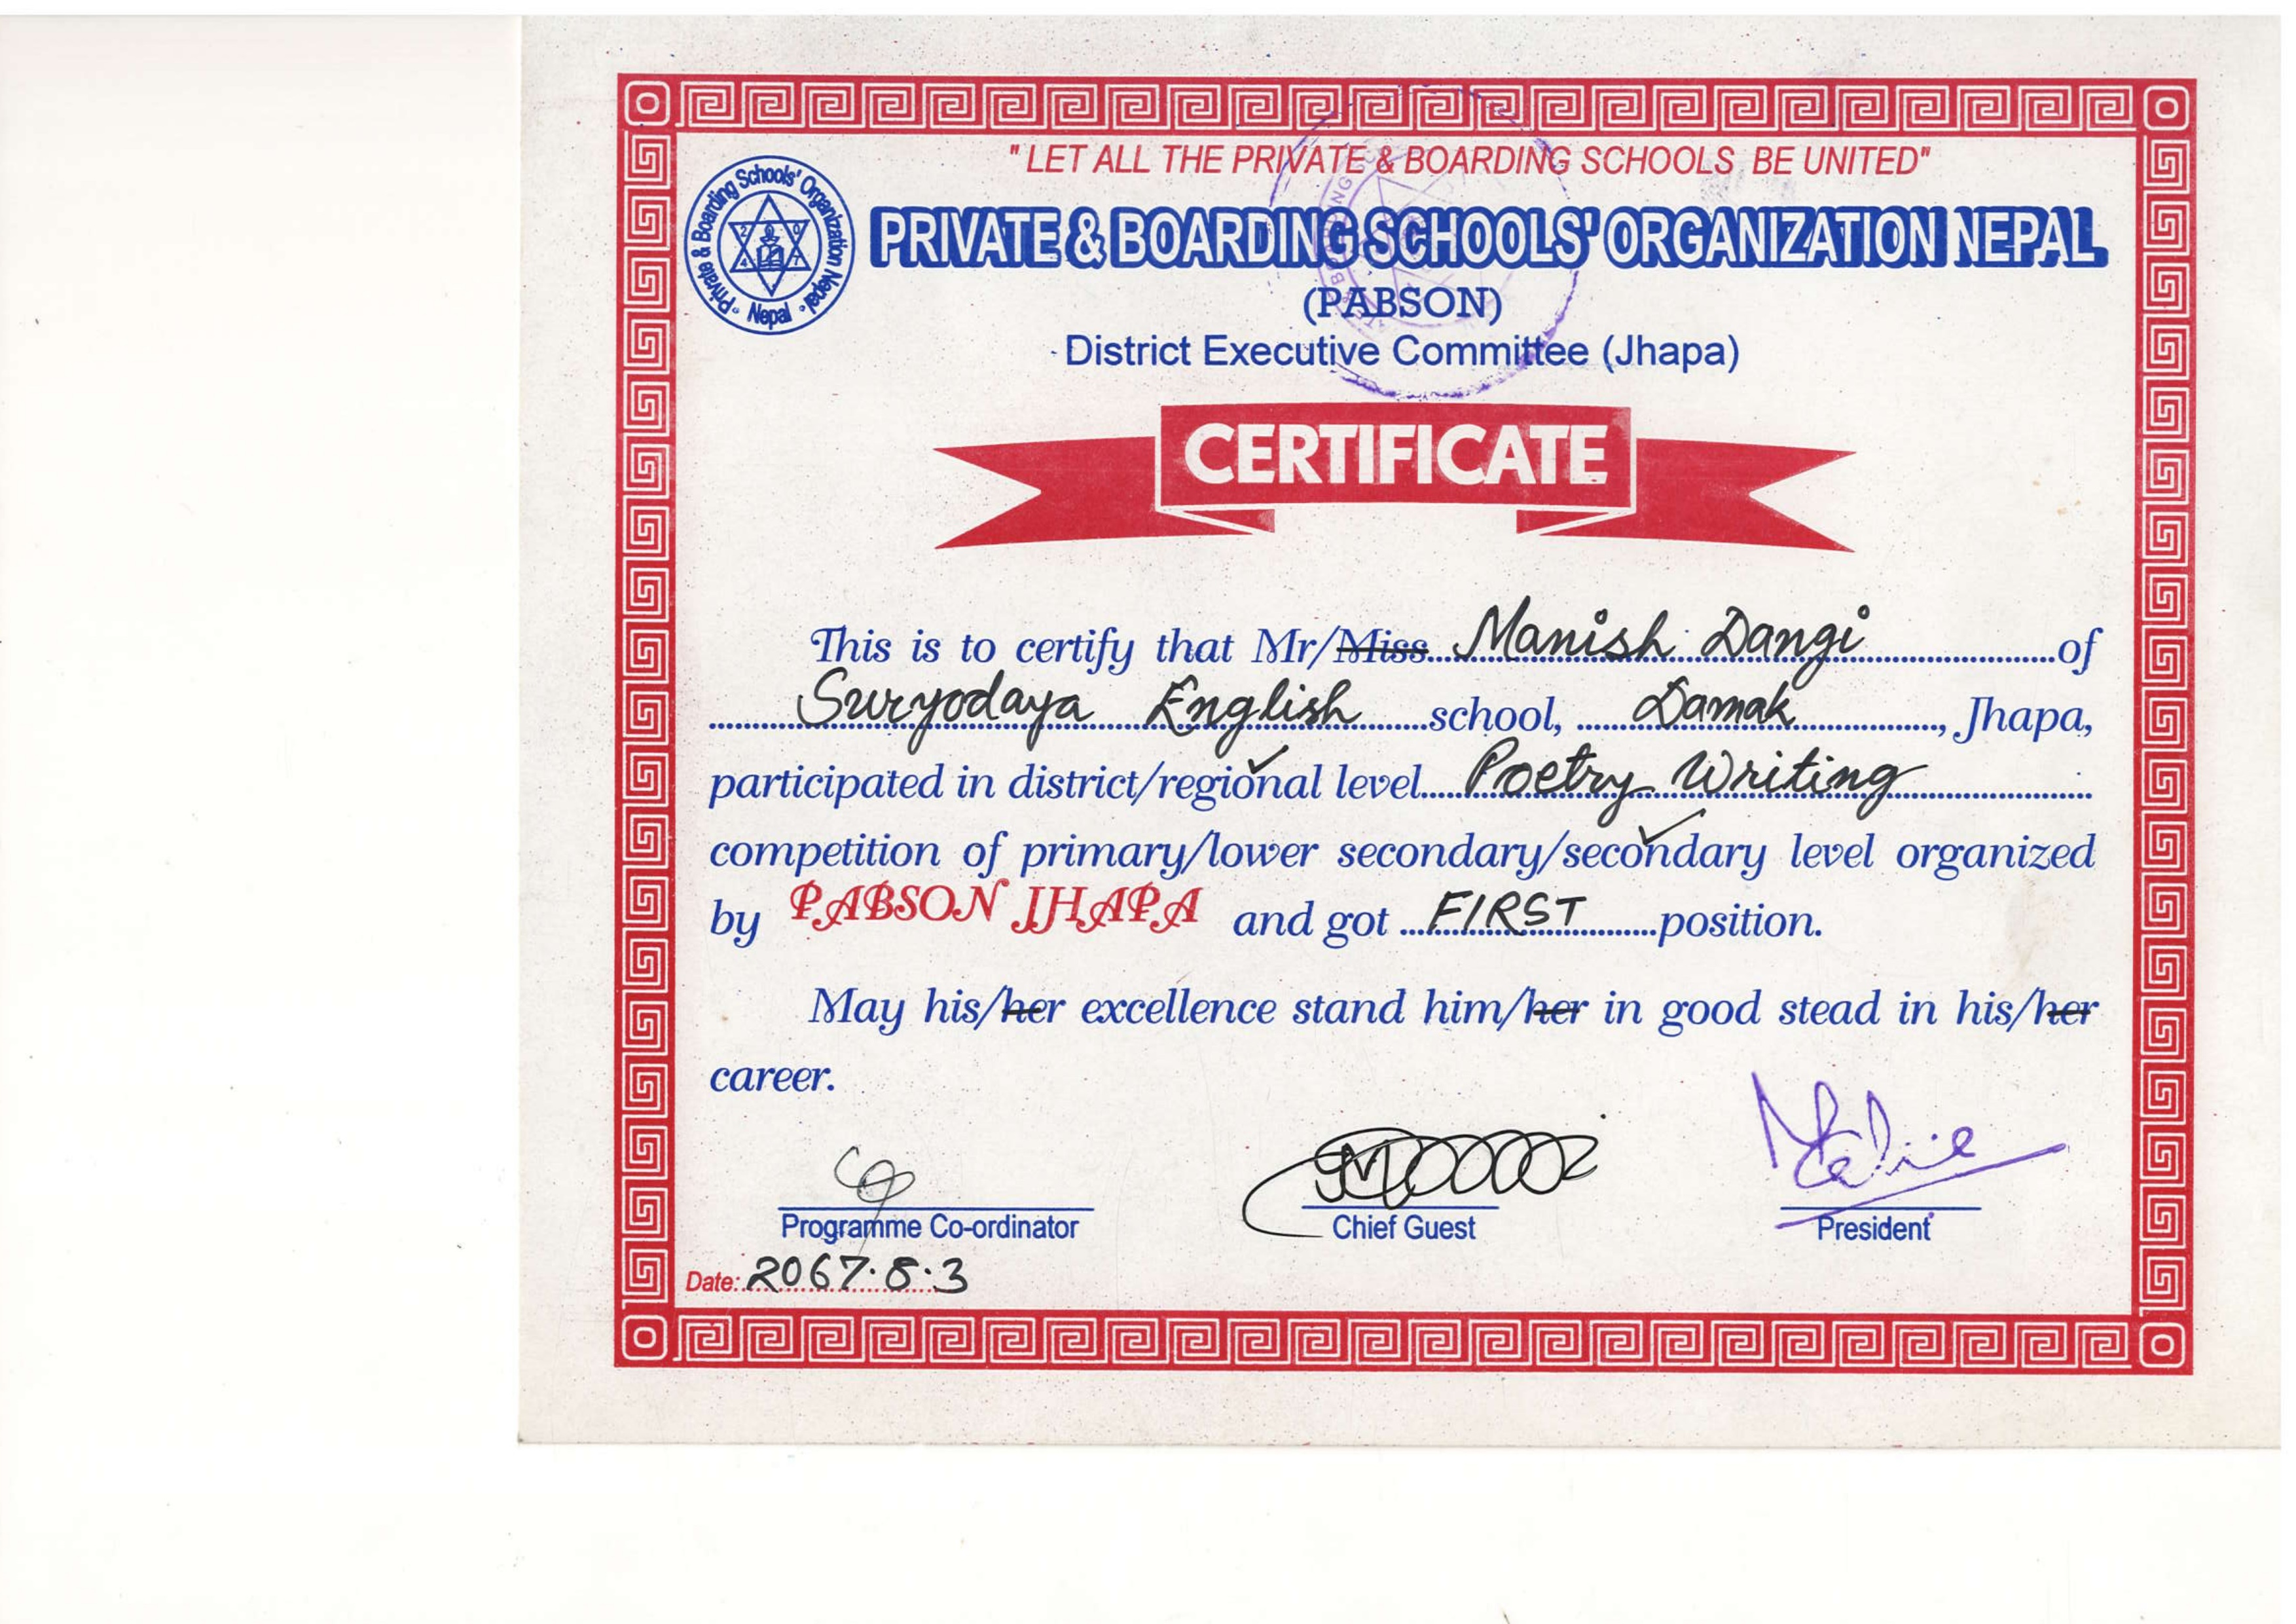 " LET ALL THE PRIVATE & BOARDING SCHOOLS BE UNITED"
Private & Boarding Schools' Organization Nepal
2 0 4 7
Nepal
PRIVATE & BOARDING SCHOOLS' ORGANIZATION NEPAL
(PABSON)
District Executive Committee (Jhapa)
CERTIFICATE
This is to certify that Mr/Miss Manish Dangi of
Suryodaya English school, Damak, Jhapa,
participated in district/regional level Poetry Writing
competition of primary/lower secondary/secondary level organized
by PABSON JHAPA and got FIRST position.
May his/her excellence stand him/her in good stead in his/her
career.
Programme Co-ordinator Chief Guest President
Date: 2067.8.3